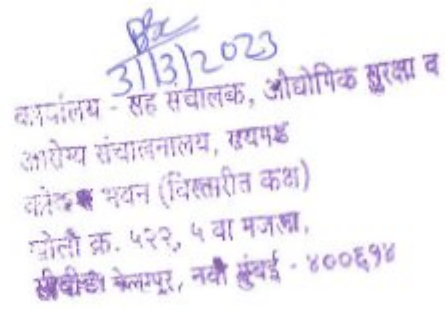 31/3/2023
कार्यालय - सह संचालक, औद्योगिक सुरक्षा व
आरोग्य संचालनालय, रायगड
कोकण भवन (विस्तारीत कक्ष)
खोली क्र. ५२२, ५ वा मजला,
सीबीडी बेलापूर, नवी मुंबई - ४००६१४